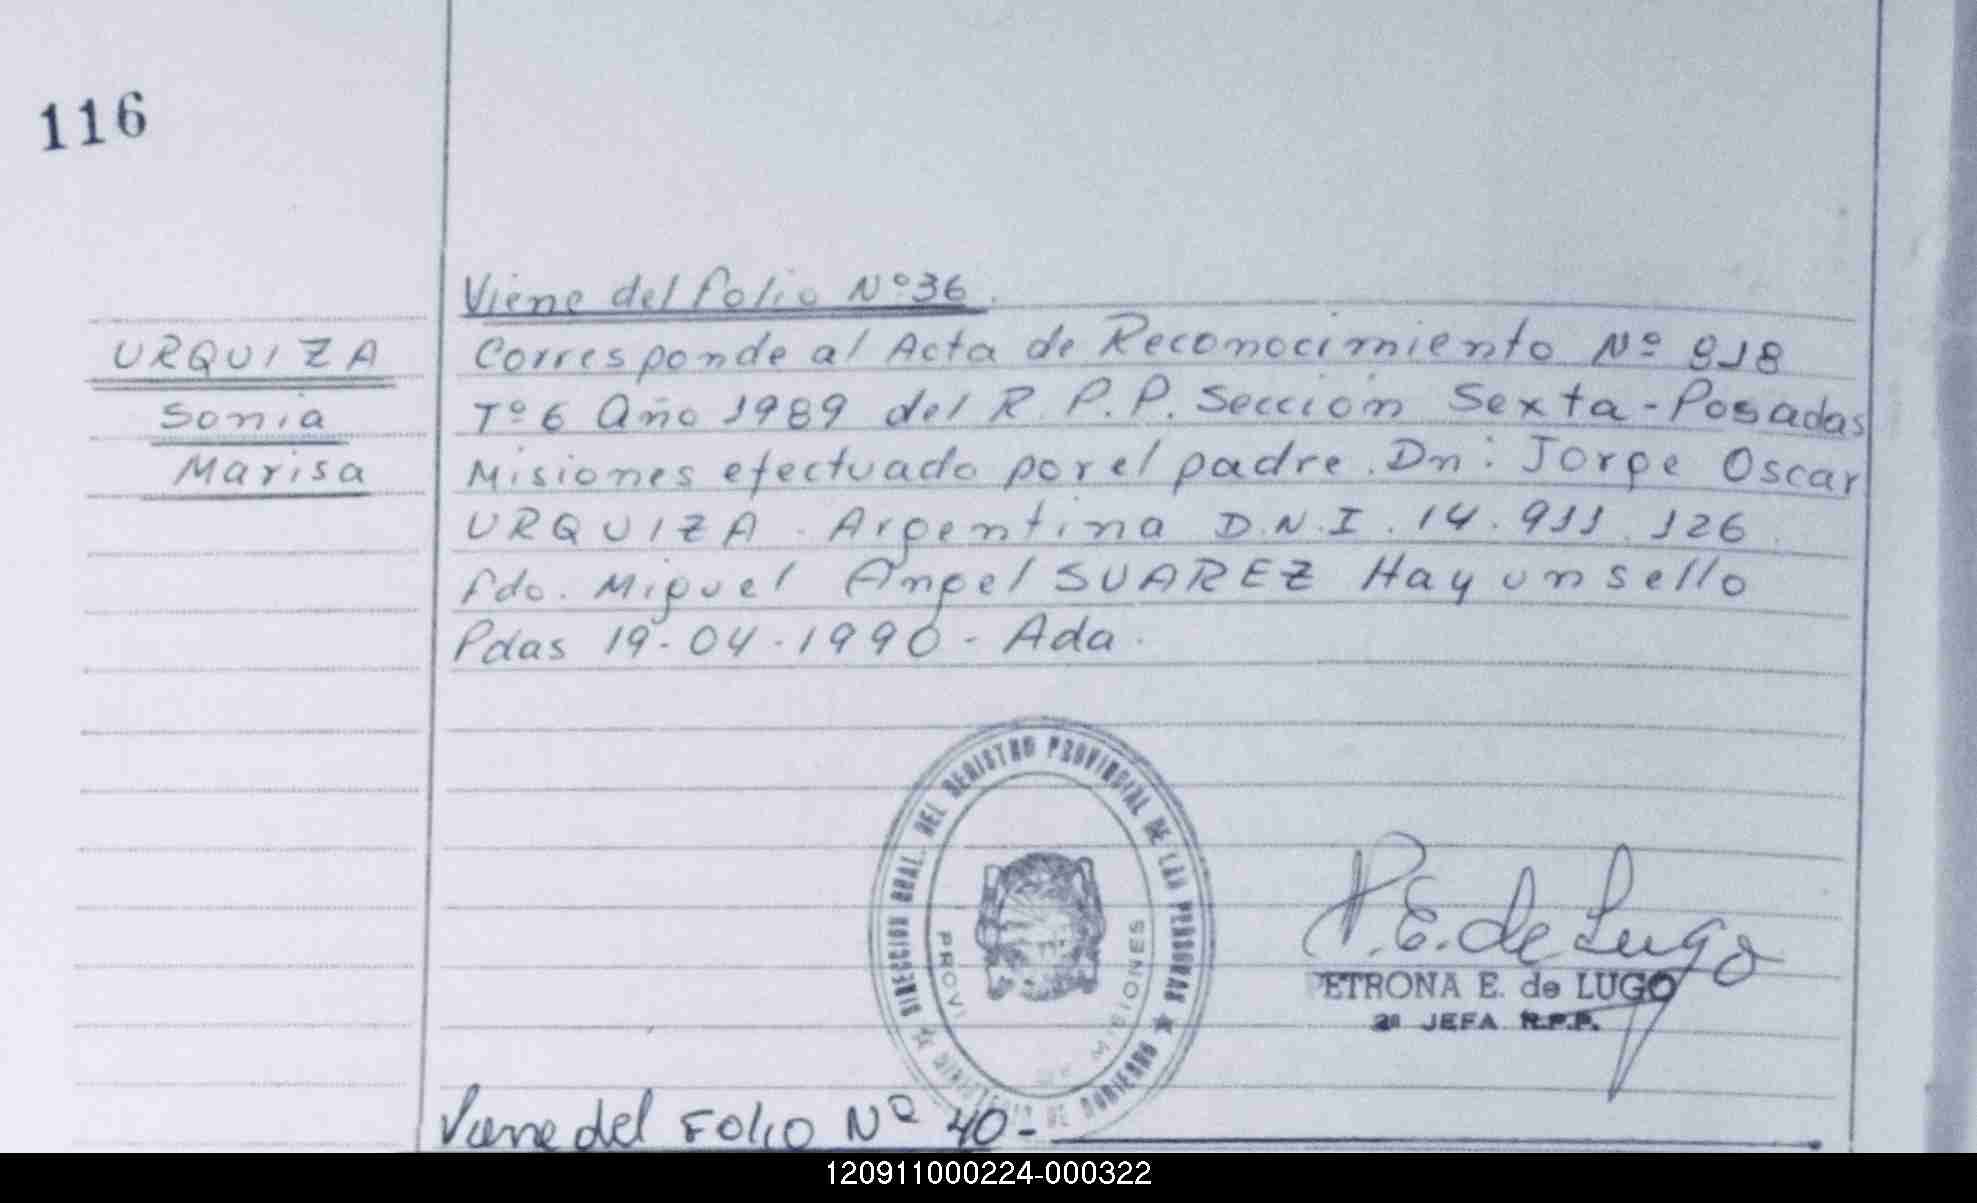 116
Viene del folio Nº 36.
URQUIZA
Sonia
Marisa
Corresponde al Acta de Reconocimiento Nº 918
Tº 6 Año 1989 del R.P.P. Sección Sexta - Posadas
Misiones efectuado por el padre. Dn: Jorge Oscar
URQUIZA. Argentina D.N.I. 14.911.126.
fdo. Miguel Angel SUAREZ Hay un sello
Pdas 19-04-1990 - Ada.
DIRECCION GRAL. DEL REGISTRO PROVINCIAL DE LAS PERSONAS
MINISTERIO DE GOBIERNO
PROVI
MISIONES
P.E. de Lugo
PETRONA E. de LUGO
2ª JEFA R.P.P.
Viene del FOLIO Nº 40-
120911000224-000322